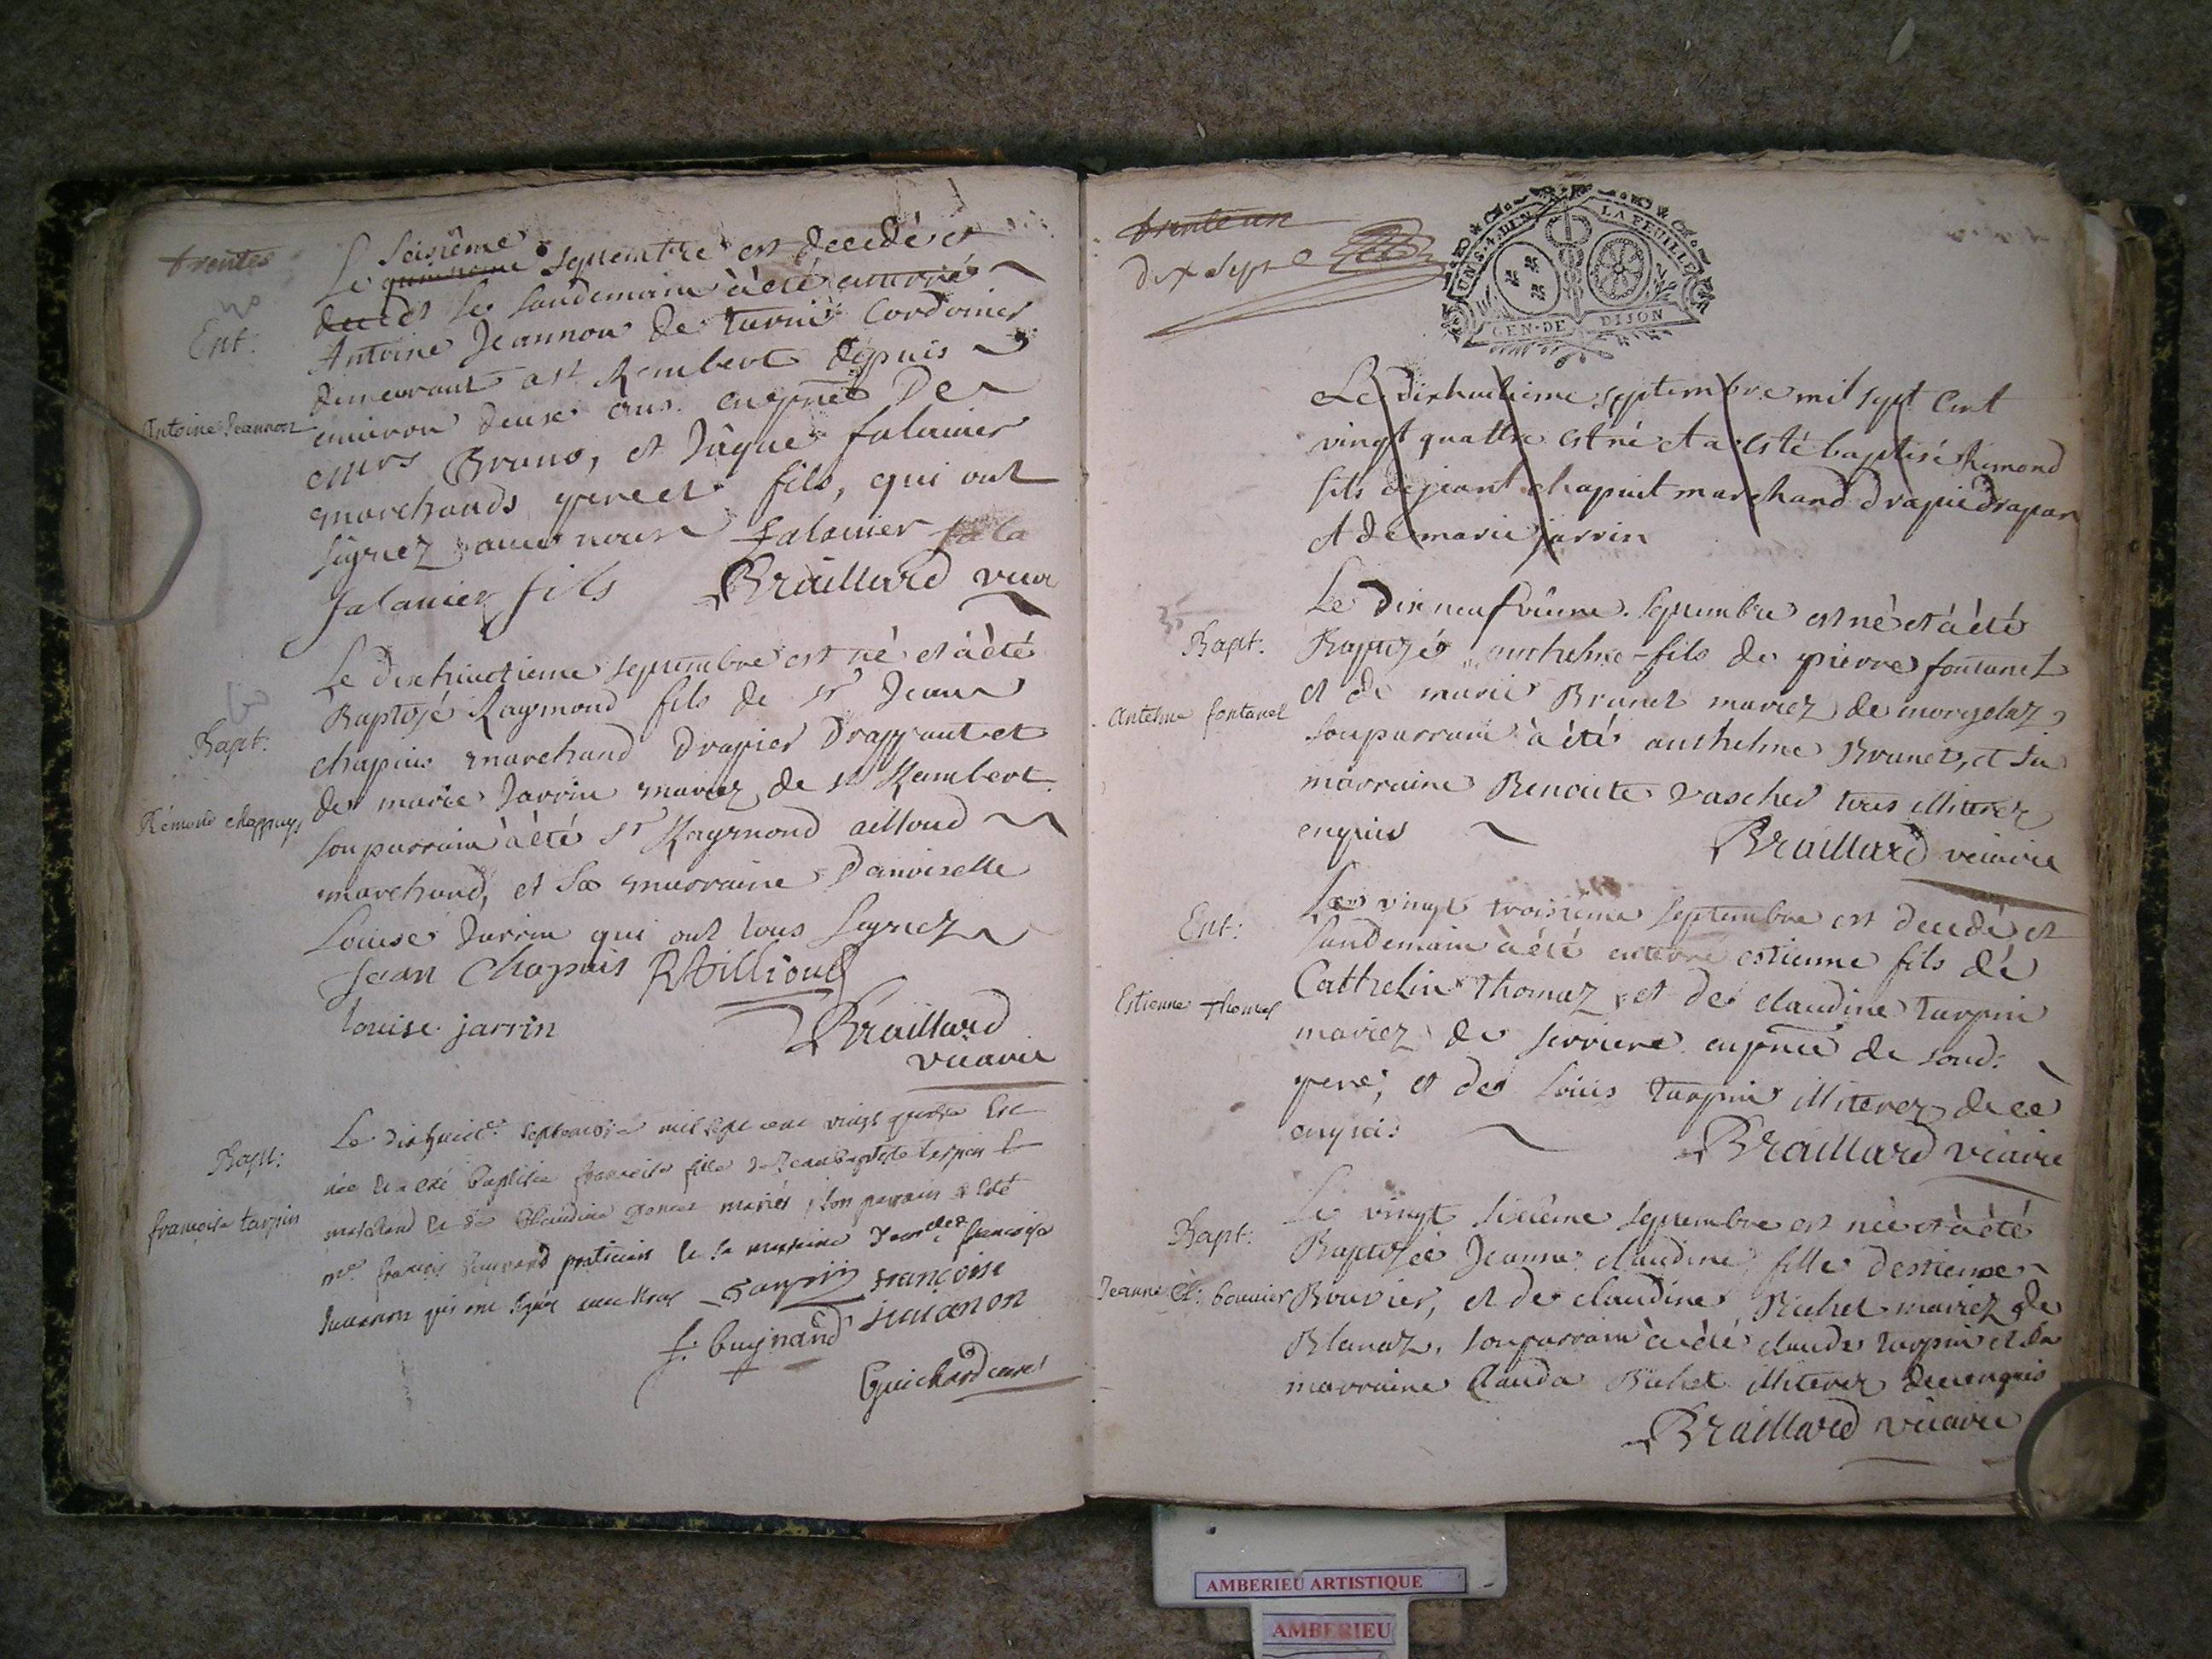 trentes
Ent:
Antoine Jeannon
Le seisième septembre est decedé et
le landemain à été enterré
Antoine Jeannon de turin Cordonier
demeurant a st Rambert depuis
environ deuse ans en pnce De
Bruno, et Jâque falavier
marchands pere et fils, qui ont
signez avec nous falavier
falavier fils Braillard vicaire
Bapt:
Rémond chappuys
Le dixhuictieme septembre est né et à été
Baptizé Raymond fils de sr Jean
chapuis marchand drapier drappant et
de marie Jarrin mariez de st Rambert
son parrain à été sr Raymond ailloud
marchand, et sa marraine Damoiselle
Louise Jarrin qui ont tous signez
Jean Chapuis RAillioud
louise jarrin Braillard
vicaire
Bapt:
francoise tarpin
Le dixhuict septembre mil sept cent vingt quatre est
née et a été baptisée francoise fille de Jean baptiste tarpin
marchand et de Claudine mariés, son parrain a esté
me francois buynand praticien et sa marraine francoise
Juvanon qui ont signé avec nous Tarpin francoise
f. buynand juvanon
Guichard curé
trente un
dix sept
UN S. 4 DEN LA FEUILLE
GEN. DE DIJON
Le dixhuitieme septembre mil sept cent
vingt quattre est né et a esté baptisé Rémond
fils de jeant chapuit marchand drapié drapan
et de marie jarrin
Bapt:
Antelme fontanel
Le dixneufvieme septembre est né et à été
Baptizé anthelme fils de pierre fontanel
et de marie Brunet mariez de morgelaz
son parrain à été anthelme Brunet, et sa
marraine Benoite vascher tous illiterez
enquis Braillard vicaire
Ent:
Estienne thomas
Le vingt troisième septembre est decedé et
landemain à été enterré estienne fils de
Cathelin thomaz et de claudine tarpin
mariez de serriere en pnce de sond:
pere, et de Louis tarpin illiterez de ce
enquis Braillard vicaire
Bapt:
Jeanne Cl: bouvier
Le vingt sixième septembre est née et à été
Baptizée Jeanne claudine fille destienne
Bouvier, et de claudine Richet mariez de
Blanaz, son parrain à été claude tarpin et la
marraine Clauda Richet illiterez de ce enquis
Braillard vicaire
AMBERIEU ARTISTIQUE
AMBERIEU